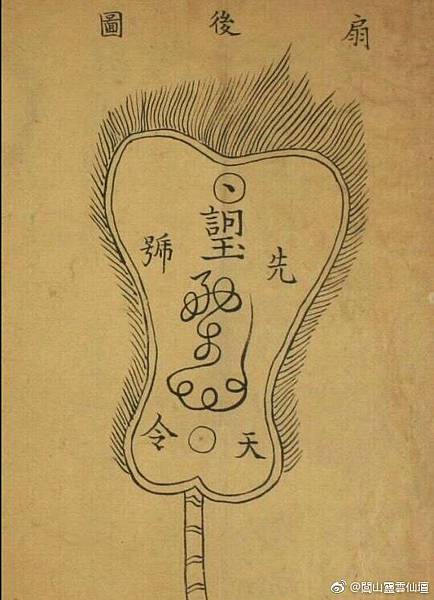 扇後圖
先天
號令
@閭山靈雲仙壇